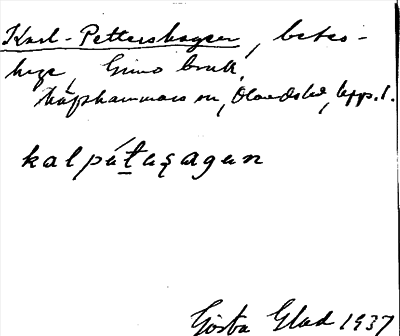 Karl-Pettershagen, betes-
hage, Gimo bruk,
Skäfthammars sn, Olands hd, Upps. l.
kalpétaşagan
Gösta Glad 1937